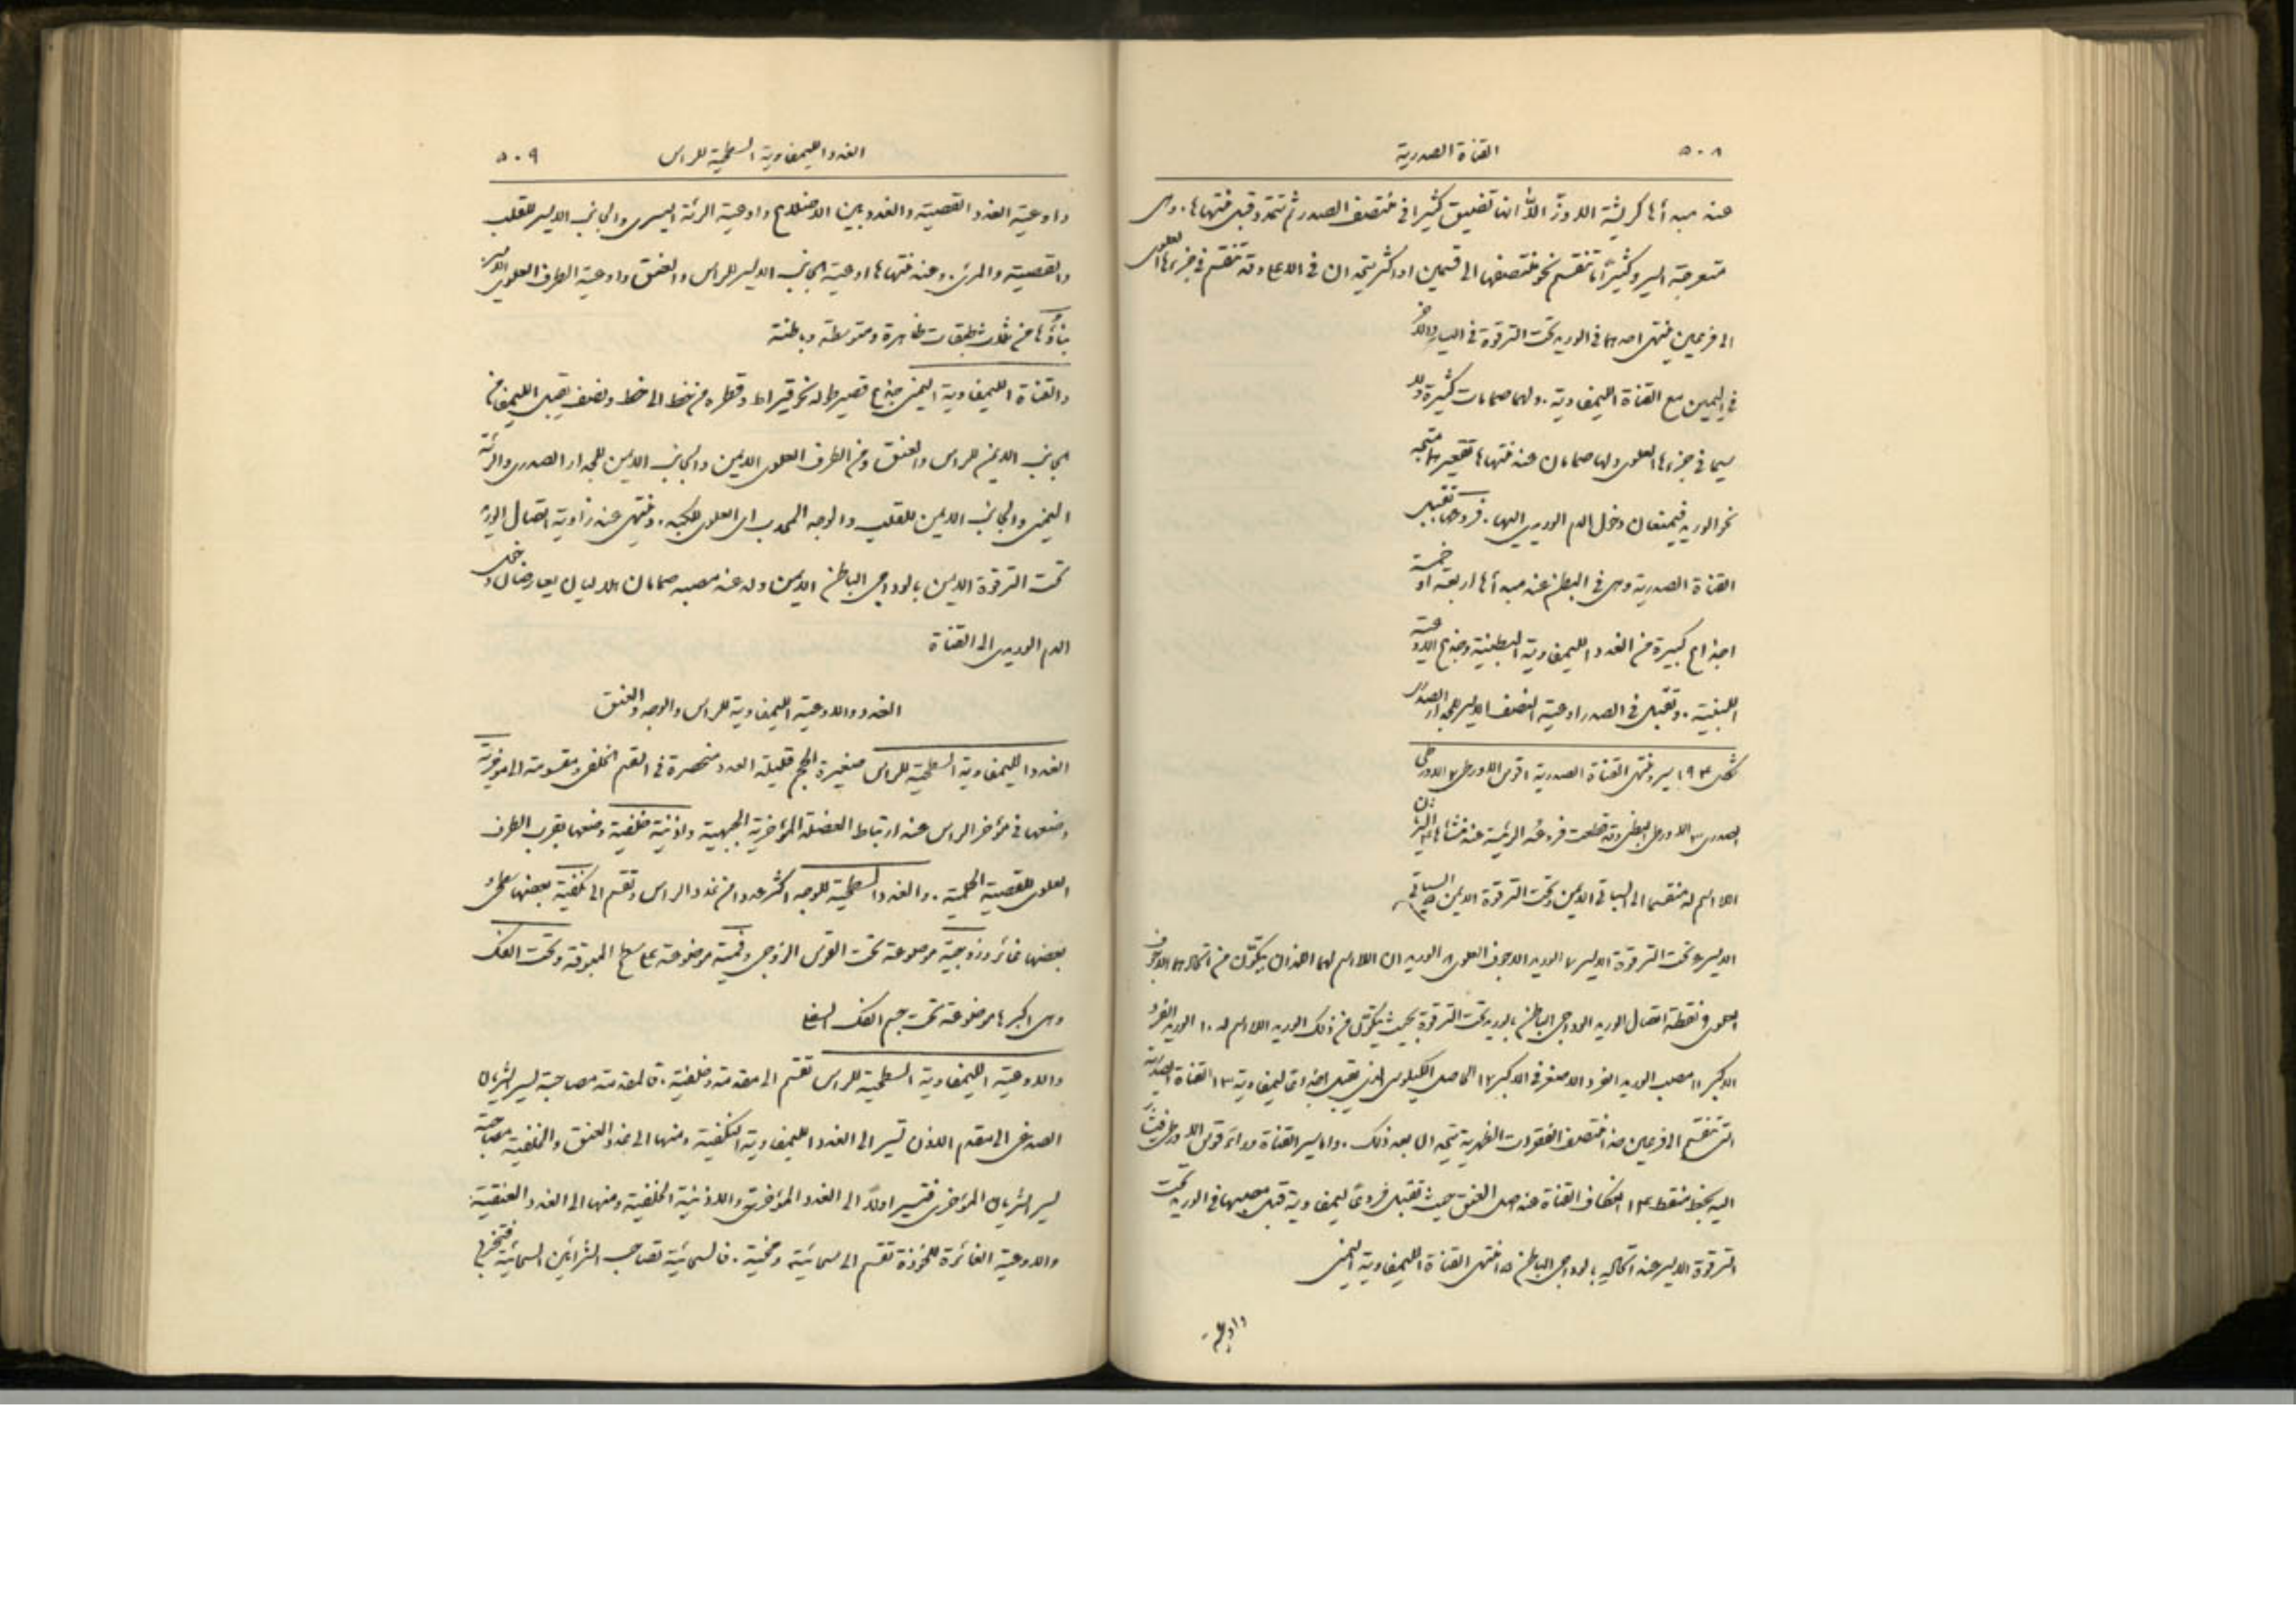 ٥٠٨ القناة الصدرية
عند مبدأها كريشة الاوز الا انها تضيق كثيرا في منتصف الصدر ثم تتمدد قبل منتهاها. وهى
متعرجة السير وكثيرًا ما تنقسم نحو منتصفها الى قسمين او اكثر يتحدان في الاعلا وقد تنقسم في جزءها العلوى
الى فرعين ينتهى احدهما في الوريد تحت الترقوة في اليسار والاخر
في اليمين مع القناة الليمفاوية. ولهما صمامات كثيرة ولا
سيما في جزءها العلوى ولها صمامان عند منتهاها تقعيرهما متجه
نحو الوريد فيمنعان دخول الدم الوريدى اليها. فروعها تقبل
القناة الصدرية وهى في البطن عند مبدأها اربعة او خمسة
اجذاع كبيرة من الغدد الليمفاوية البطنية وجذع الاوعية
اللبنية. وتقبل في الصدر اوعية النصف الايسر للجدار الصدرى
شكل ١٩٣ سير ومنتهى القناة الصدرية ١ قوس الاورطى ٢ الاورطى
الصدرى ٣ الاورطى البطنى وقد قطعت فروعه الرئيسة عند منشاها ٤ الشريان
اللا اسم له منقسما الى السباتى الايمن وتحت الترقوة الايمن ٥ السباتى
الايسر ٦ تحت الترقوة الايسر ٧ الوريد الاجوف العلوى ٨ الوريدان اللا اسم لهما اللذان يتكون من اتحادهما الاجوف
العلوى ٩ نقطة اتصال الوريد الوداجى الباطن بالوريد تحت الترقوة بحيث يتكون من ذلك الوريد اللا اسم له ١٠ الوريد الفرد
الاكبر ١١ مصب الوريد الفرد الاصغر في الاكبر ١٢ الحاصل الكيلوسى الذى تقبل اجذاعًا ليمفاوية ١٣ القناة الصدرية
التى تنقسم الى فرعين عند منتصف الفقرات الظهرية يتحدان بعد ذلك. واما سير القناة وراء قوس الاورطى فيشار
اليه بخط منقط ١٤ انعطاف القناة عند اصل العنق حيث تقبل فروعًا ليمفاوية قبل مصبها في الوريد تحت
الترقوة الايسر عند اتحاده بالوداجى الباطن ١٥ منتهى القناة الليمفاوية اليمنى
واوعية
الغدد الليمفاوية السطحية للراس ٥٠٩
واوعية الغدد القصية والغدد بين الاضلاع واوعية الرئة اليسرى والجانب الايسر للقلب
والقصبة والمرئ. وعند منتهاها اوعية الجانب الايسر للراس والعنق واوعية الطرف العلوى الايسر
بناؤها من ثلاث طبقات ظاهرة ومتوسطة وباطنة
والقناة الليمفاوية اليمنى جذع قصير طوله نحو قيراط وقطره من خط الى خط ونصف يقبل الليمفا من
الجانب الايمن للراس والعنق ومن الطرف العلوى الايمن والجانب الايمن للجدار الصدرى والرئة
اليمنى والجانب الايمن للقلب والوجه المحدب اى العلوى للكبد. وينتهى عند زاوية اتصال الوريد
تحت الترقوة الايمن بالوداجى الباطن الايمن وله عند مصبه صمامان هلاليان يعارضان دخول
الدم الوريدى الى القناة
الغدد والاوعية الليمفاوية للراس والوجه والعنق
الغدد الليمفاوية السطحية للراس صغيرة الحجم قليلة العدد منحصرة في القسم الخلفى ومقسومة الى مؤخرية
وضعها في مؤخر الراس عند ارتباط العضلة المؤخرية الجبهية واذنية خلفية وضعها بقرب الطرف
العلوى للقصية الحلمية. والغدد السطحية للوجه اكثر عددا من غدد الراس وتقسم الى نكفية بعضها سطحى و
بعضها غائر وزوجية موضوعة تحت القوس الزوجى وفمية موضوعة على سطح المبوقة وتحت الفك
وهى اكبرها موضوعة تحت جسم الفك السفلى
والاوعية الليمفاوية السطحية للراس تقسم الى مقدمة وخلفية. فالمقدمة مصاحبة لسير الشريان
الصدغى الى مقدم الاذن تسير الى الغدد الليمفاوية النكفية ومنها الى غدد العنق والخلفية مصاحبة
لسير الشريان المؤخرى فتسير اولاً الى الغدد المؤخرية والاذنية الخلفية ومنها الى الغدد العنقية.
والاوعية الغائرة للخوذة تقسم الى سمحائية ومخية. فالسمحائية تصاحب الشرايين السمحائية فتخرج